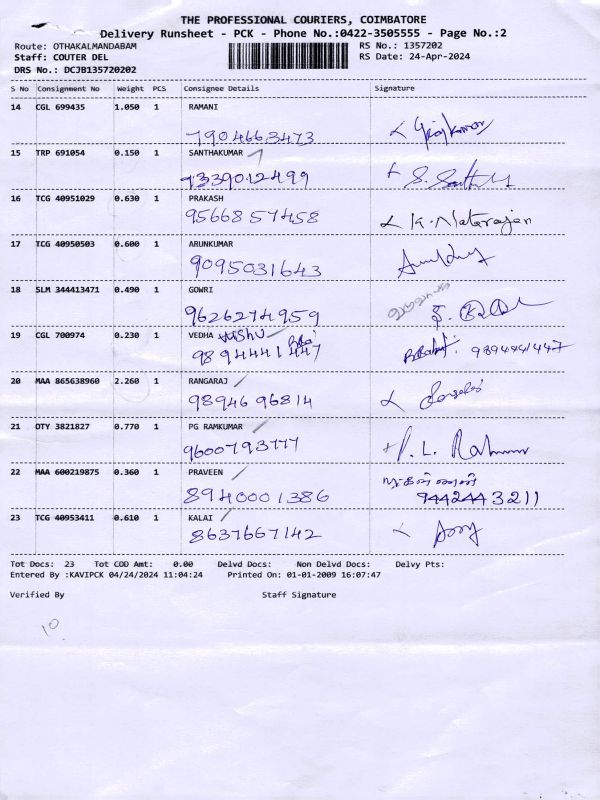 THE PROFESSIONAL COURIERS, COIMBATORE
Delivery Runsheet - PCK - Phone No.:0422-3505555 - Page No.:2
Route: OTHAKALMANDABAM RS No.: 1357202
Staff: COUTER DEL RS Date: 24-Apr-2024
DRS No.: DCJB135720202
S No Consignment No Weight PCS Consignee Details Signature
14 CGL 699435 1.050 1 RAMANI
7904663473
15 TRP 691054 0.150 1 SANTHAKUMAR
9339012499
16 TCG 40951029 0.630 1 PRAKASH
9566857458 K. Natarajan
17 TCG 40950503 0.600 1 ARUNKUMAR
9095031643
18 SLM 344413471 0.490 1 GOWRI
9626274959
19 CGL 700974 0.230 1 VEDHA VISHU
9894441447 9894441447
20 MAA 865638960 2.260 1 RANGARAJ
9894696814
21 OTY 3821827 0.770 1 PG RAMKUMAR
9600793777
22 MAA 600219875 0.360 1 PRAVEEN
8940001386 9442443211
23 TCG 40953411 0.610 1 KALAI
8637667142
Tot Docs: 23 Tot COD Amt: 0.00 Delvd Docs: Non Delvd Docs: Delvy Pts:
Entered By :KAVIPCK 04/24/2024 11:04:24 Printed On: 01-01-2009 16:07:47
Verified By Staff Signature
10